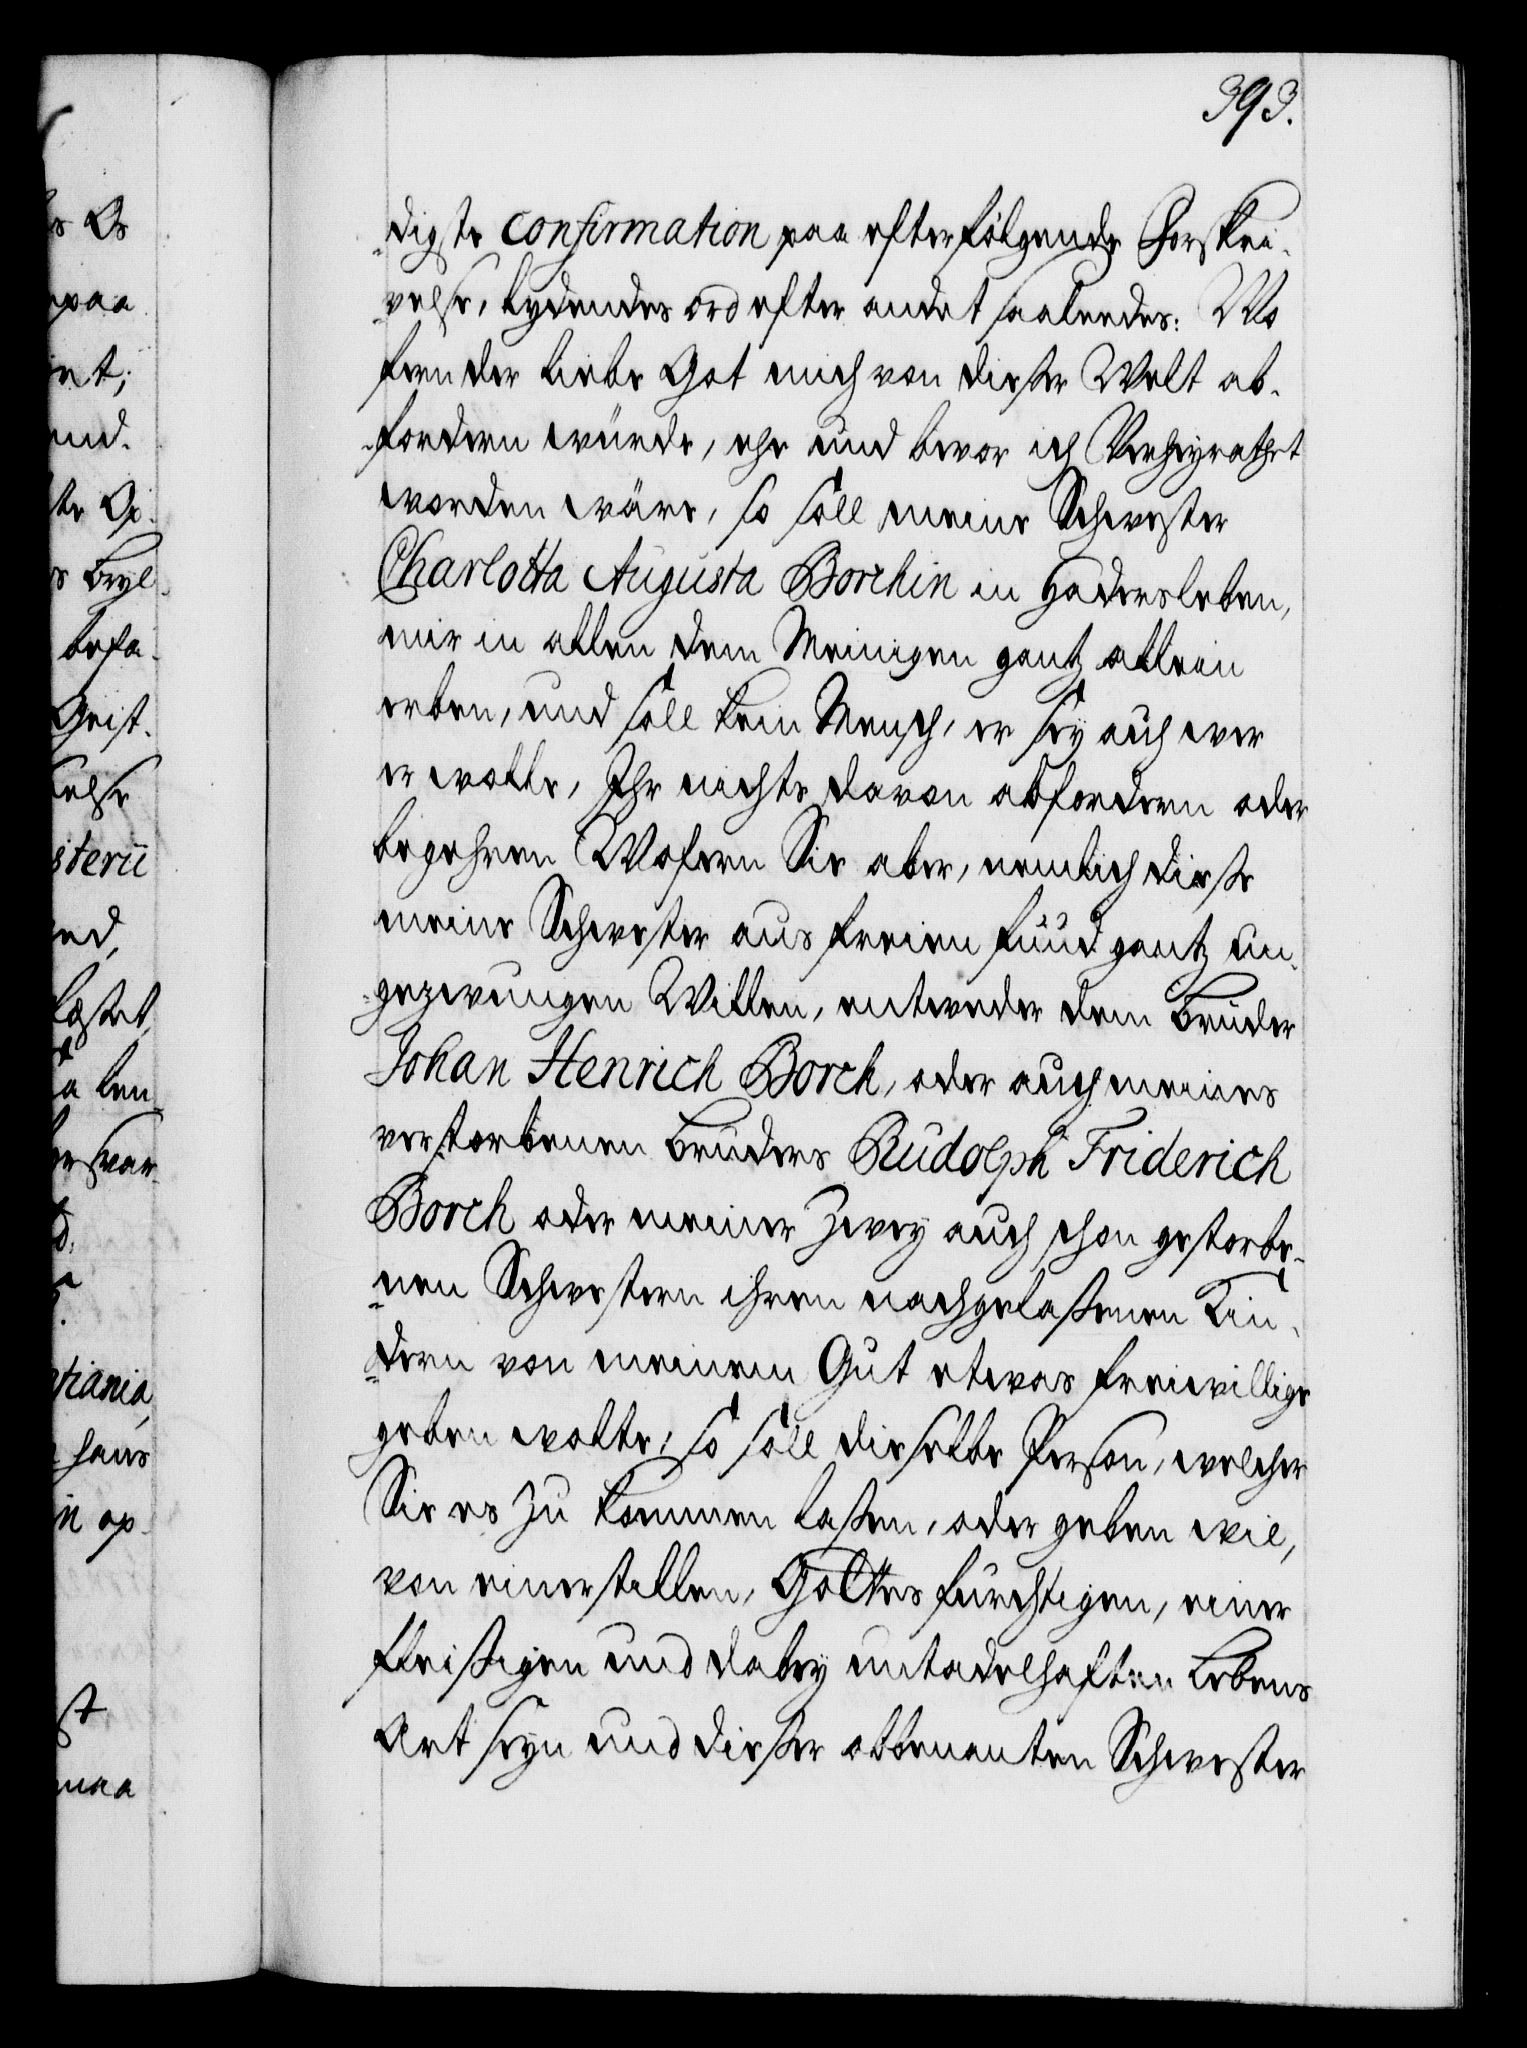 393.
digste Confirmation paa efterfölgende Forskri-
velse, lydendes ord efter andet saaledes: Wo
fern der liebe Got mich von dießer Welt ab-
fordern würde, ehe und bevor ich Verheyrathet
worden wäre, so soll meine Schwester
Charlotta Augusta Borchin in Hadersleben,
mir in allen dem Meinigen gantz allein
erben, und soll kein Mensch, er sey auch wer
er wolle, Ihr nichts davon abfordern oder
begehren Wofern Sie aber, nemlich dieße
meine Schwester aus freien und gantz un-
gezwungen Willen, entweder dem Bruder
Johan Henrich Borch, oder auch meines
verstorbenen Bruders Rudolph Friderich
Borch oder meiner Zwey auch schon gestorbe-
nen Schwestern ihren nachgelaßenen Kin-
dern von meinem Gut etwas freiwillige
geben wolte, so soll dieselbe Person, welcher
Sie es zu kommen laßen, oder geben wil,
von einer stillen, Gottes fürchtigen, einer
fleißigen und dabey untadelhaften Lebens
Art seyn und dießer obbenanten Schwester